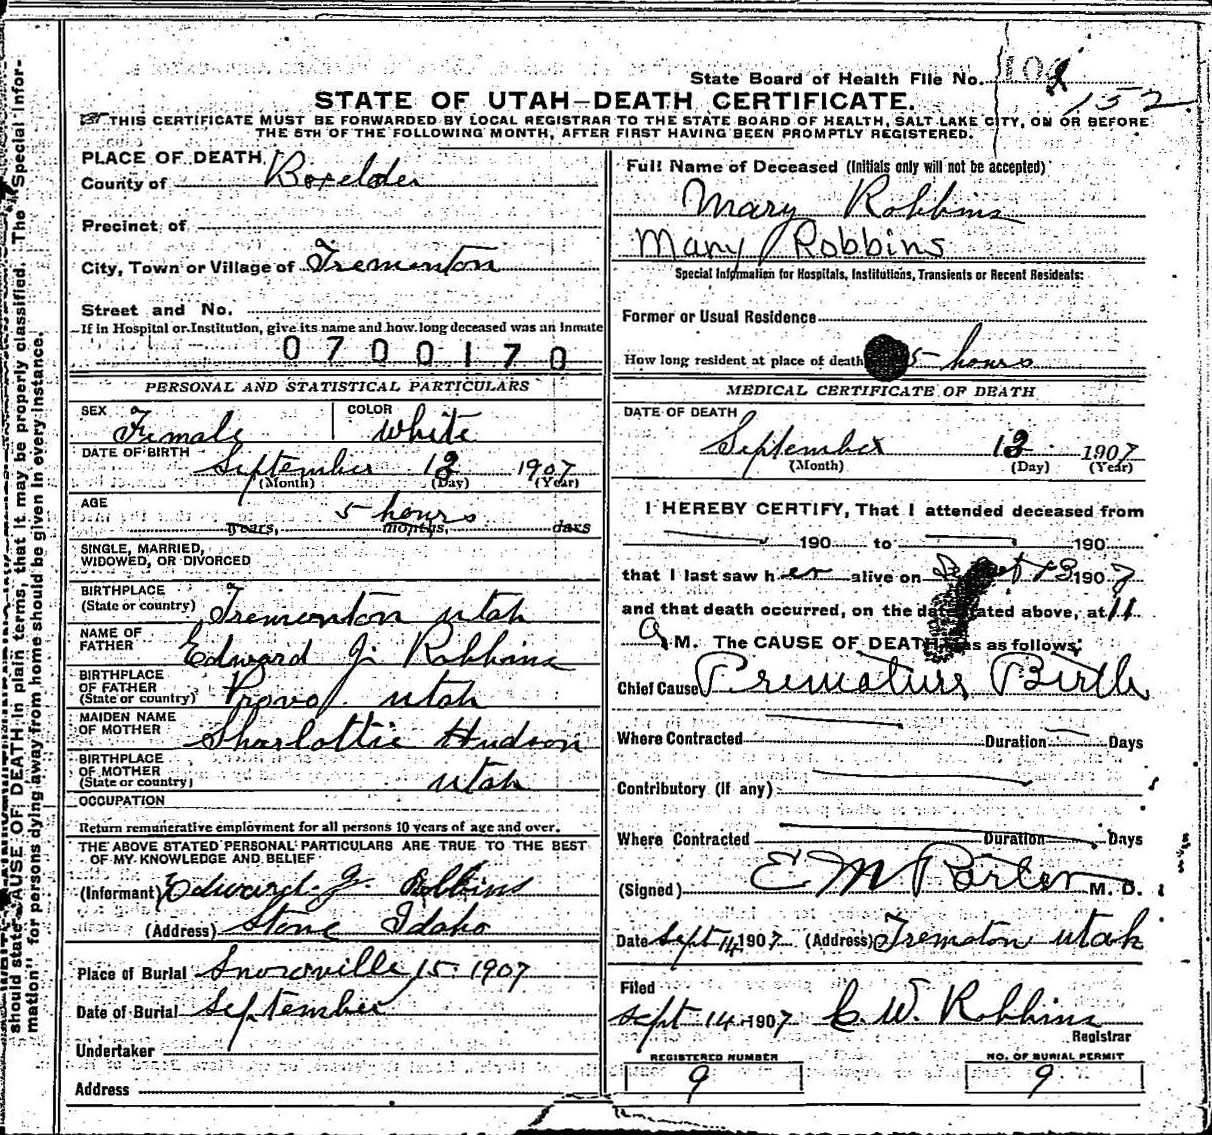 State Board of Health File No. 102
152
STATE OF UTAH—DEATH CERTIFICATE.
THIS CERTIFICATE MUST BE FORWARDED BY LOCAL REGISTRAR TO THE STATE BOARD OF HEALTH, SALT LAKE CITY, ON OR BEFORE
THE 5TH OF THE FOLLOWING MONTH, AFTER FIRST HAVING BEEN PROMPTLY REGISTERED.
PLACE OF DEATH,
County of Boxelder
Precinct of
City, Town or Village of Tremonton
Street and No.
If in Hospital or Institution, give its name and how long deceased was an inmate
0700170
PERSONAL AND STATISTICAL PARTICULARS
SEX Female COLOR White
DATE OF BIRTH September 13 1907
(Month) (Day) (Year)
AGE 5 hours
years, months, days
SINGLE, MARRIED,
WIDOWED, OR DIVORCED
BIRTHPLACE
(State or country) Tremonton utah
NAME OF
FATHER Edward J. Robbins
BIRTHPLACE
OF FATHER
(State or country) Provo utah
MAIDEN NAME
OF MOTHER Sharlottie Hudson
BIRTHPLACE
OF MOTHER
(State or country) utah
OCCUPATION
Return remunerative employment for all persons 10 years of age and over.
THE ABOVE STATED PERSONAL PARTICULARS ARE TRUE TO THE BEST
OF MY KNOWLEDGE AND BELIEF
(Informant) Edward J. Robbins
(Address) Stone Idaho
Place of Burial Snowville 15. 1907
Date of Burial September
Undertaker
Address
Full Name of Deceased (Initials only will not be accepted)
Mary Robbins
Mary Robbins
Special Information for Hospitals, Institutions, Transients or Recent Residents:
Former or Usual Residence
How long resident at place of death 5 hours
MEDICAL CERTIFICATE OF DEATH
DATE OF DEATH
September 13 1907
(Month) (Day) (Year)
I HEREBY CERTIFY, That I attended deceased from
190 to 190
that I last saw her alive on Sept 13 1907
and that death occurred, on the date stated above, at 11
a M. The CAUSE OF DEATH was as follows:
Chief Cause Premature Birth
Where Contracted Duration Days
Contributory (If any)
Where Contracted Duration Days
(Signed) E M Porter M. D.
Date Sept 14 1907 (Address) Tremoton utah
Filed
sept 14 1907 C. W. Robbins
Registrar
REGISTERED NUMBER NO. OF BURIAL PERMIT
9 9
should state CAUSE OF DEATH in plain terms, that it may be properly classified. The "Special Infor-
mation" for persons dying away from home should be given in every instance.